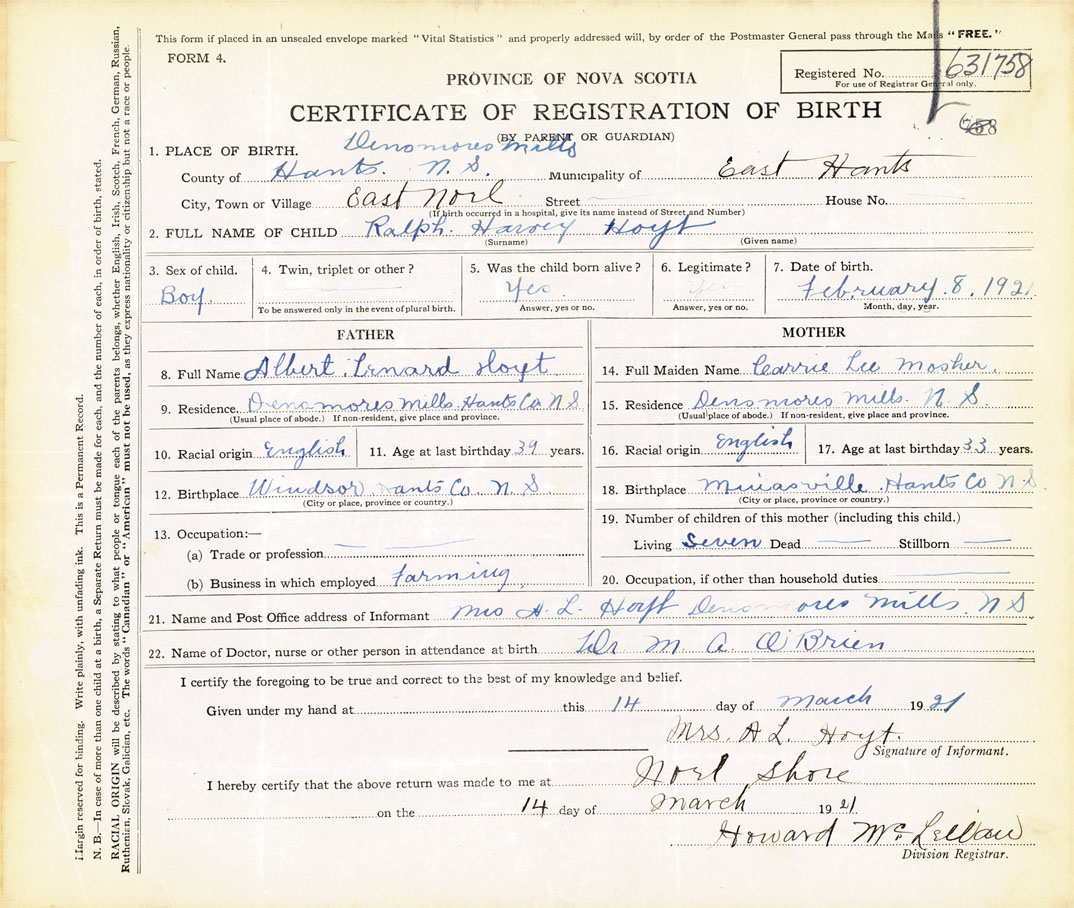 This form if placed in an unsealed envelope marked "Vital Statistics" and properly addressed will, by order of the Postmaster General pass through the Mails "FREE."
FORM 4.
Registered No. 631758
For use of Registrar General only.
PROVINCE OF NOVA SCOTIA
CERTIFICATE OF REGISTRATION OF BIRTH
(BY PARENT OR GUARDIAN)
1. PLACE OF BIRTH. Densmores Mills
County of Hants. N. S. Municipality of East Hants
City, Town or Village East Noel Street House No.
(If birth occurred in a hospital, give its name instead of Street and Number)
2. FULL NAME OF CHILD Ralph. Harvey Hoyt
(Surname) (Given name)
3. Sex of child. 4. Twin, triplet or other? 5. Was the child born alive? 6. Legitimate? 7. Date of birth.
Boy. Yes. Yes February. 8. 1921
To be answered only in the event of plural birth. Answer, yes or no. Answer, yes or no. Month, day, year.
FATHER
8. Full Name Albert Lenard Hoyt
9. Residence. Densmores Mills. Hants Co N S.
(Usual place of abode.) If non-resident, give place and province.
10. Racial origin English 11. Age at last birthday 39 years.
12. Birthplace Windsor Hants Co. N. S.
(City or place, province or country.)
13. Occupation:—
(a) Trade or profession
(b) Business in which employed Farming
MOTHER
14. Full Maiden Name Carrie Lee Mosher.
15. Residence Densmores Mills. N. S.
(Usual place of abode.) If non-resident, give place and province.
16. Racial origin English 17. Age at last birthday 33 years.
18. Birthplace Minasville Hants Co N.S.
(City or place, province or country.)
19. Number of children of this mother (including this child.)
Living Seven Dead Stillborn
20. Occupation, if other than household duties
21. Name and Post Office address of Informant Mrs A. L. Hoyt Densmores Mills. N S
22. Name of Doctor, nurse or other person in attendance at birth Dr M A. O'Brien
I certify the foregoing to be true and correct to the best of my knowledge and belief.
Given under my hand at this 14 day of March 1921
Mrs. A L. Hoyt.
Signature of Informant.
I hereby certify that the above return was made to me at Noel Shore
on the 14 day of March 1921
Howard McLellan
Division Registrar.
Margin reserved for binding. Write plainly, with unfading ink. This is a Permanent Record.
N. B.—In case of more than one child at a birth, a Separate Return must be made for each, and the number of each, in order of birth, stated.
RACIAL ORIGIN will be described by stating to what people or tongue each of the parents belongs, whether English, Irish, Scotch, French, German, Russian,
Ruthenian, Slovak, Galician, etc. The words "Canadian" or "American" must not be used, as they express nationality or citizenship but not a race or people.